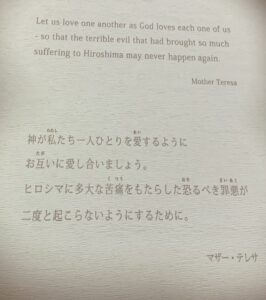 Let us love one another as God loves each one of us
- so that the terrible evil that had brought so much
suffering to Hiroshima may never happen again.
Mother Teresa
神が私たち一人ひとりを愛するように
お互いに愛し合いましょう。
ヒロシマに多大な苦痛をもたらした恐るべき罪悪が
二度と起こらないようにするために。
マザー・テレサ